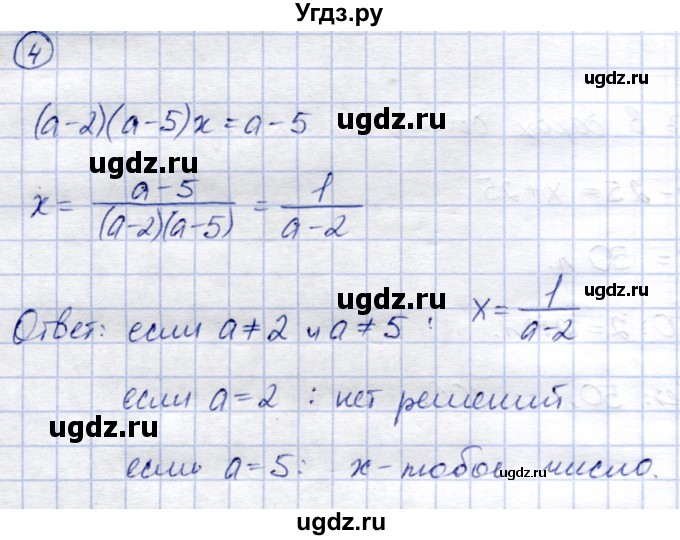 Угдз.ру
4 ugdz.ru
(a-2)(a-5)x = a-5 ugdz.ru ugdz.ru
ugdz.ru
x = (a-5)/((a-2)(a-5)) = 1/(a-2) ugdz.ru
ugdz.ru ugdz.ru
Ответ: если a≠2 и a≠5 : x = 1/(a-2)
если a=2 : нет решений
ugdz.ru ugdz.ru
если a=5: x - любое число.
ugdz.ru
ugdz.ru